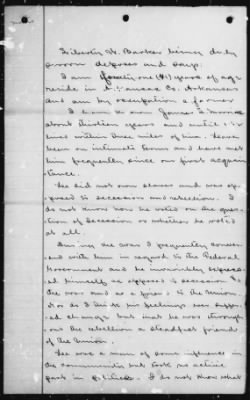 Liberty H. Barker being duly
sworn deposes and says.
I am forty one (41) years of age
reside in Arkansas Co. Arkansas
and am by occupation a farmer
I have known James
about thirteen years and until
lived within three miles of him. Have
been on intimate terms and have met
him frequently since our first acquain
tance.
He did not own slaves and was op-
posed to secession and rebellion. I
do not know how he voted on the ques
tion of secession or whether he voted
at all.
During the war I frequently convers
ed with him in regard to the Federal
Government and he invariably express
ed himself as opposed to secession &
the war and as a friend to the Union.
Nor do I think his feelings ever
ed change but that he was through
out the rebellion a steadfast friend
of the Union.
He was a man of some influence in
the community but took no active
part in politics. I do not know what